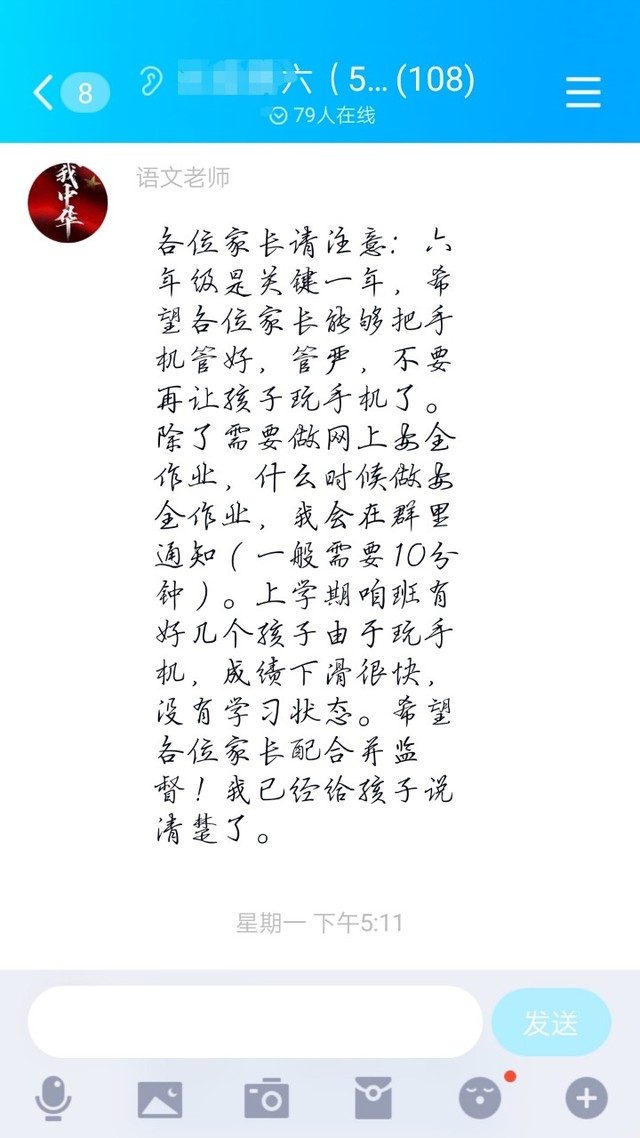 8
六（5...(108)
79人在线
我中华
语文老师
各位家长请注意：六
年级是关键一年，希
望各位家长能够把手
机管好，管严，不要
再让孩子玩手机了。
除了需要做网上安全
作业，什么时候做安
全作业，我会在群里
通知（一般需要10分
钟）。上学期咱班有
好几个孩子由于玩手
机，成绩下滑很快，
没有学习状态。希望
各位家长配合并监
督！我已经给孩子说
清楚了。
星期一 下午5:11
发送